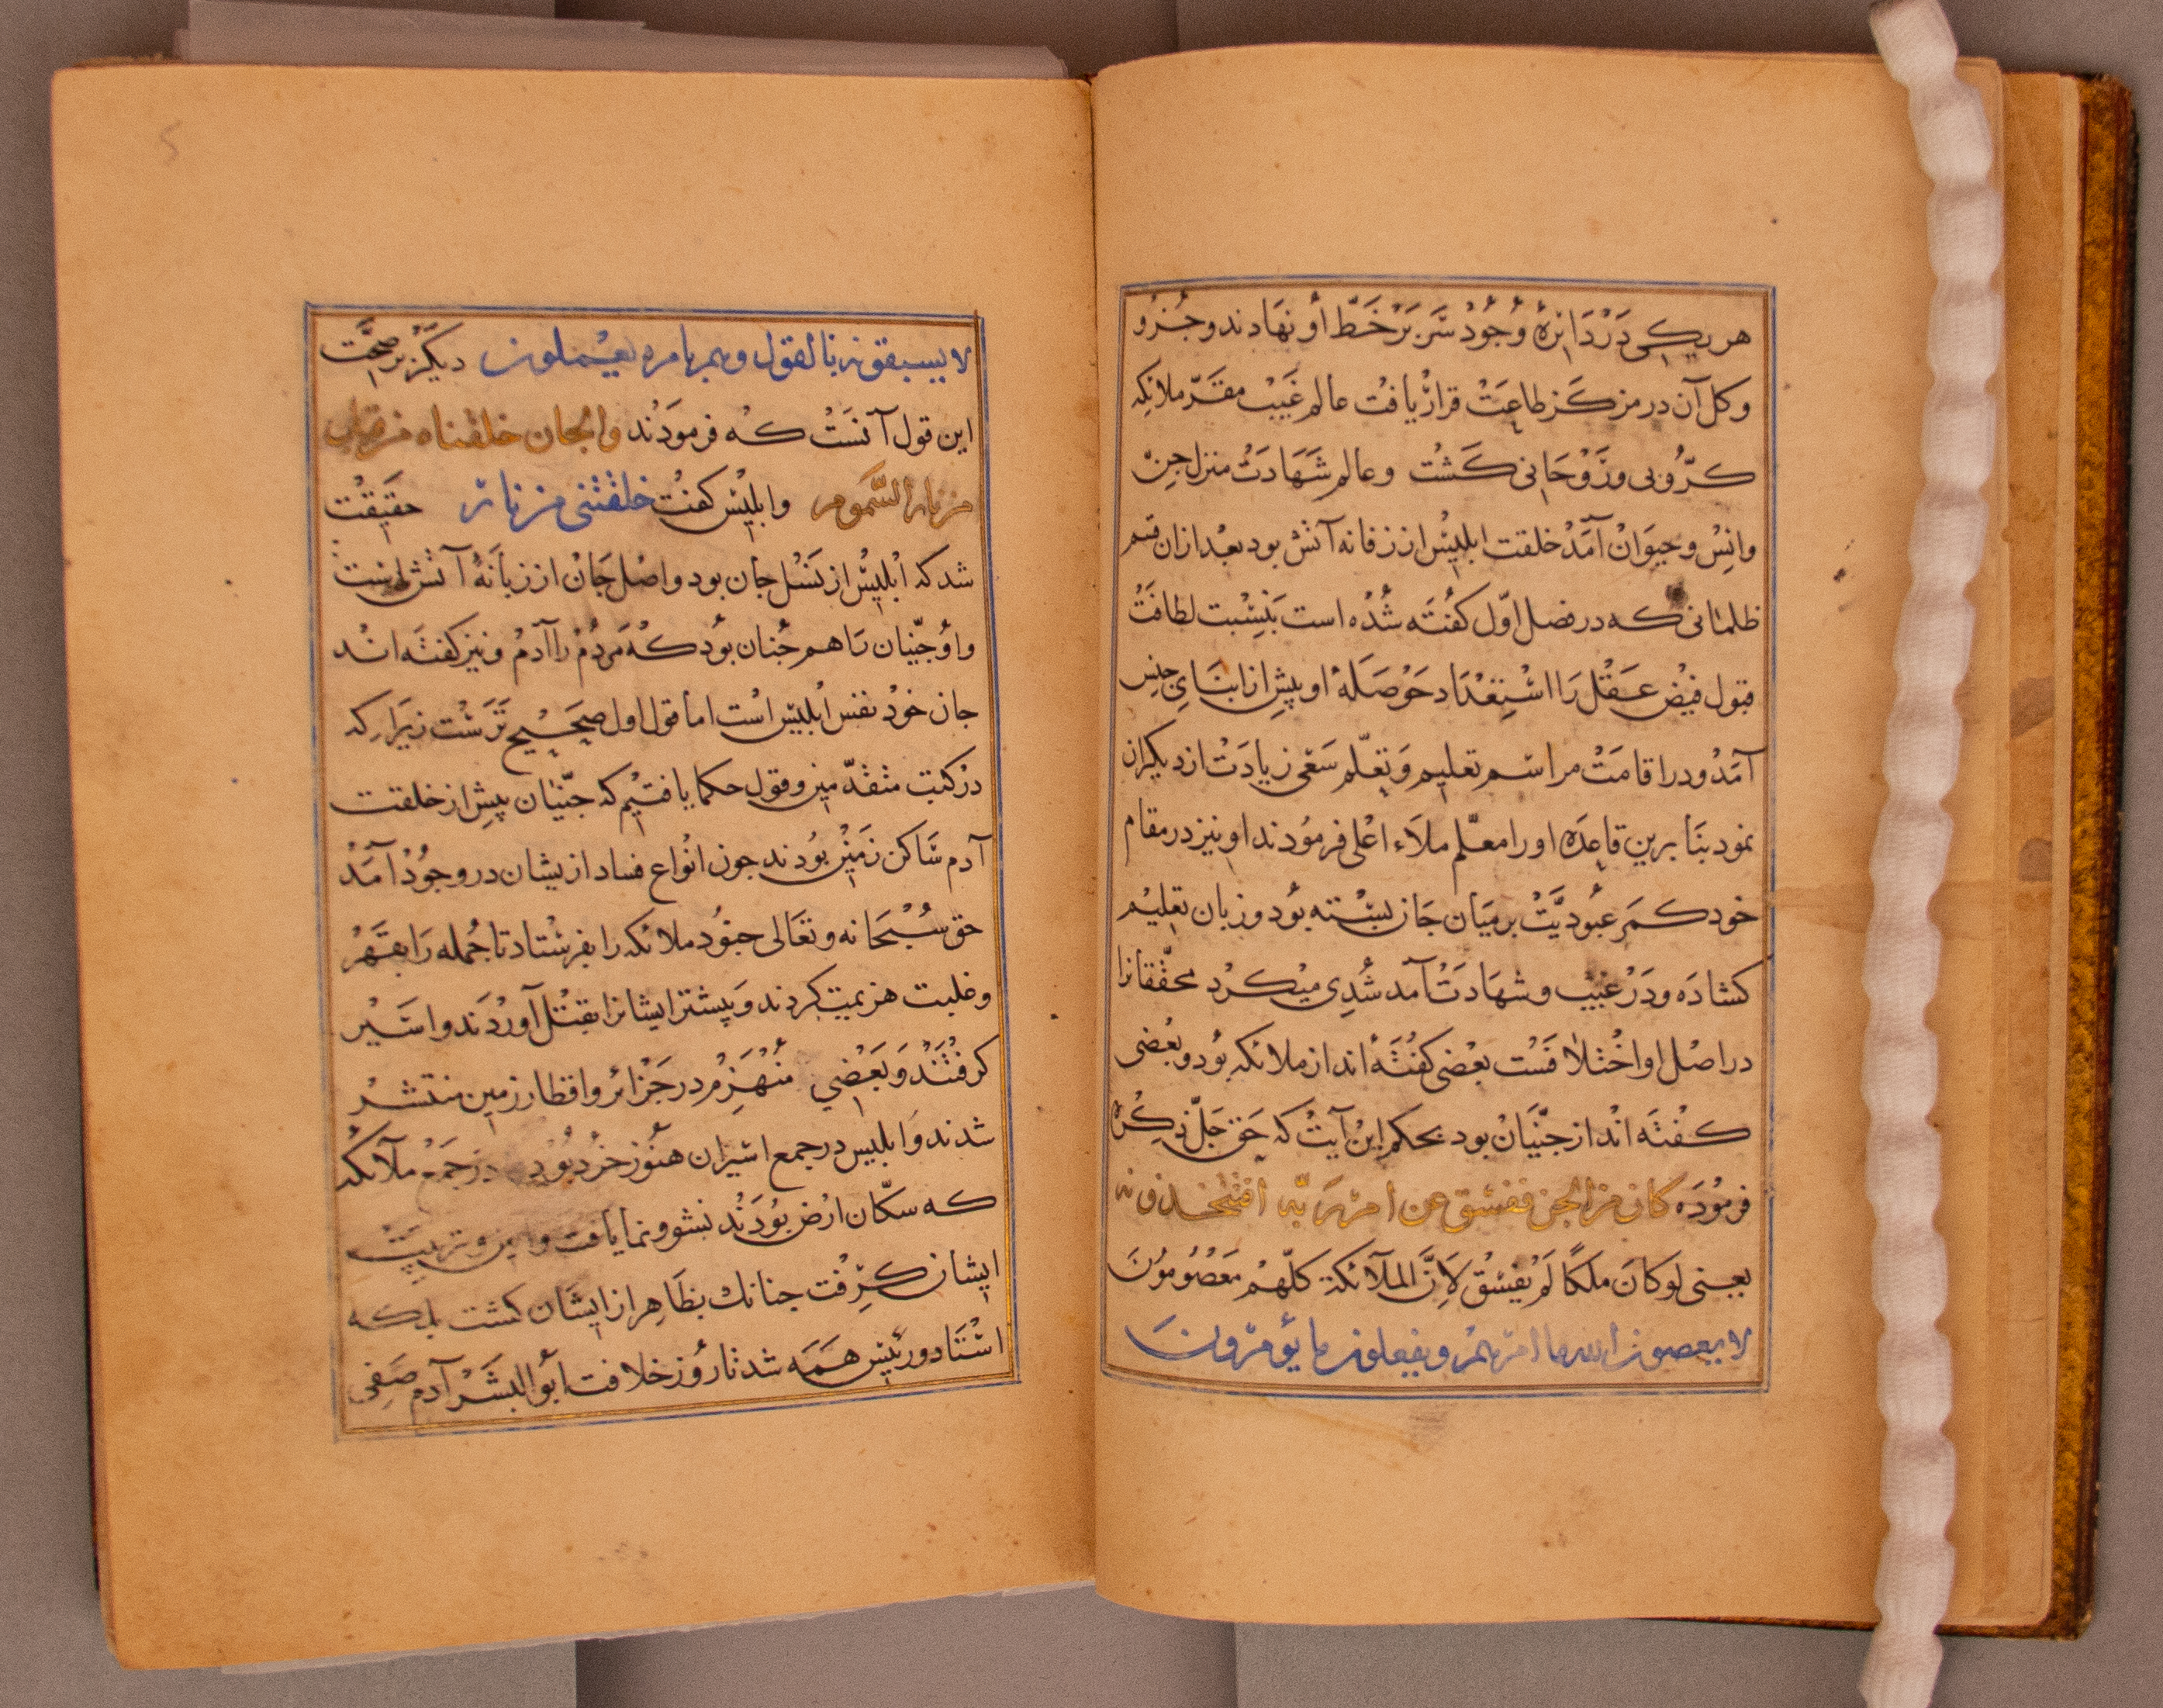 هر یکی در دائرهٔ وجود سر بر خط او نهادند و جزو
و کل آن در مرکز طاعت قرار یافت عالم غیب مقر ملائکه
کروبی و روحانی کشت و عالم شهادت منزل جن
و انس و حیوان آمد خلقت ابلیس از زفانه آتش بود بعد ازان قسم
ظلمانی که در فصل اول کفته شده است بنسبت لطافت
قبول فیض عقل را استعداد حوصلهٔ او پیش از ابنای جنس
آمد و در اقامت مراسم تعلیم و تعلم سعی زیادت از دیکران
نمود بنا برین قاعده او را معلم ملاء اعلی فرمودند او نیز در مقام
خود کمر عبودیت بر میان جان بسته بود و زبان تعلیم
کشاده و در غیب و شهادت آمد شدی میکرد محققانرا
در اصل او اختلافست بعضی کفته اند از ملائکه بود و بعضی
کفته اند از جنیان بود بحکم این آیت که حق جل ذکره
فرموده کان من الجن ففسق عن امر ربه افتتخذونه
یعنی لو کان ملکا لم یفسق لان الملآئکة کلهم معصومون
لا یعصون الله ما امرهم و یفعلون ما یؤمرون
لا یسبقونه بالقول وهم بامره یعملون دیکر بر صحت
این قول آنست که فرمودند والجان خلقناه من قبل
من نار السموم و ابلیس کفت خلقتنی من نار حقیقت
شد که ابلیس از نسل جان بود و اصل جان از زبانهٔ آتش است
و او جنیان را هم جنان بود که مردم را آدم و نیز کفته اند
جان خود نفس ابلیس است اما قول اول صحیح ترست زیرا که
در کتب متقدمین و قول حکما یافتیم که جنیان پیش از خلقت
آدم ساکن زمین بودند جون انواع فساد ازیشان در وجود آمد
حق سبحانه و تعالی جنود ملائکه را بفرستاد تا جمله را بقهر
و غلبت هزیمت کردند و پیشتر ایشانرا بقتل آوردند و اسیر
کرفتند و بعضی منهزم در جزائر و اقطار زمین منتشر
شدند و ابلیس در جمع اسیران هنوز خرد بود در جمع ملآئکه
که سکان ارض بودند نشو و نما یافت و تربیت
ایشان کرفت جنانک بظاهر از ایشان کشت بلکه
استاد و رئیس همه شد تا روز خلافت ابو البشر آدم صفی